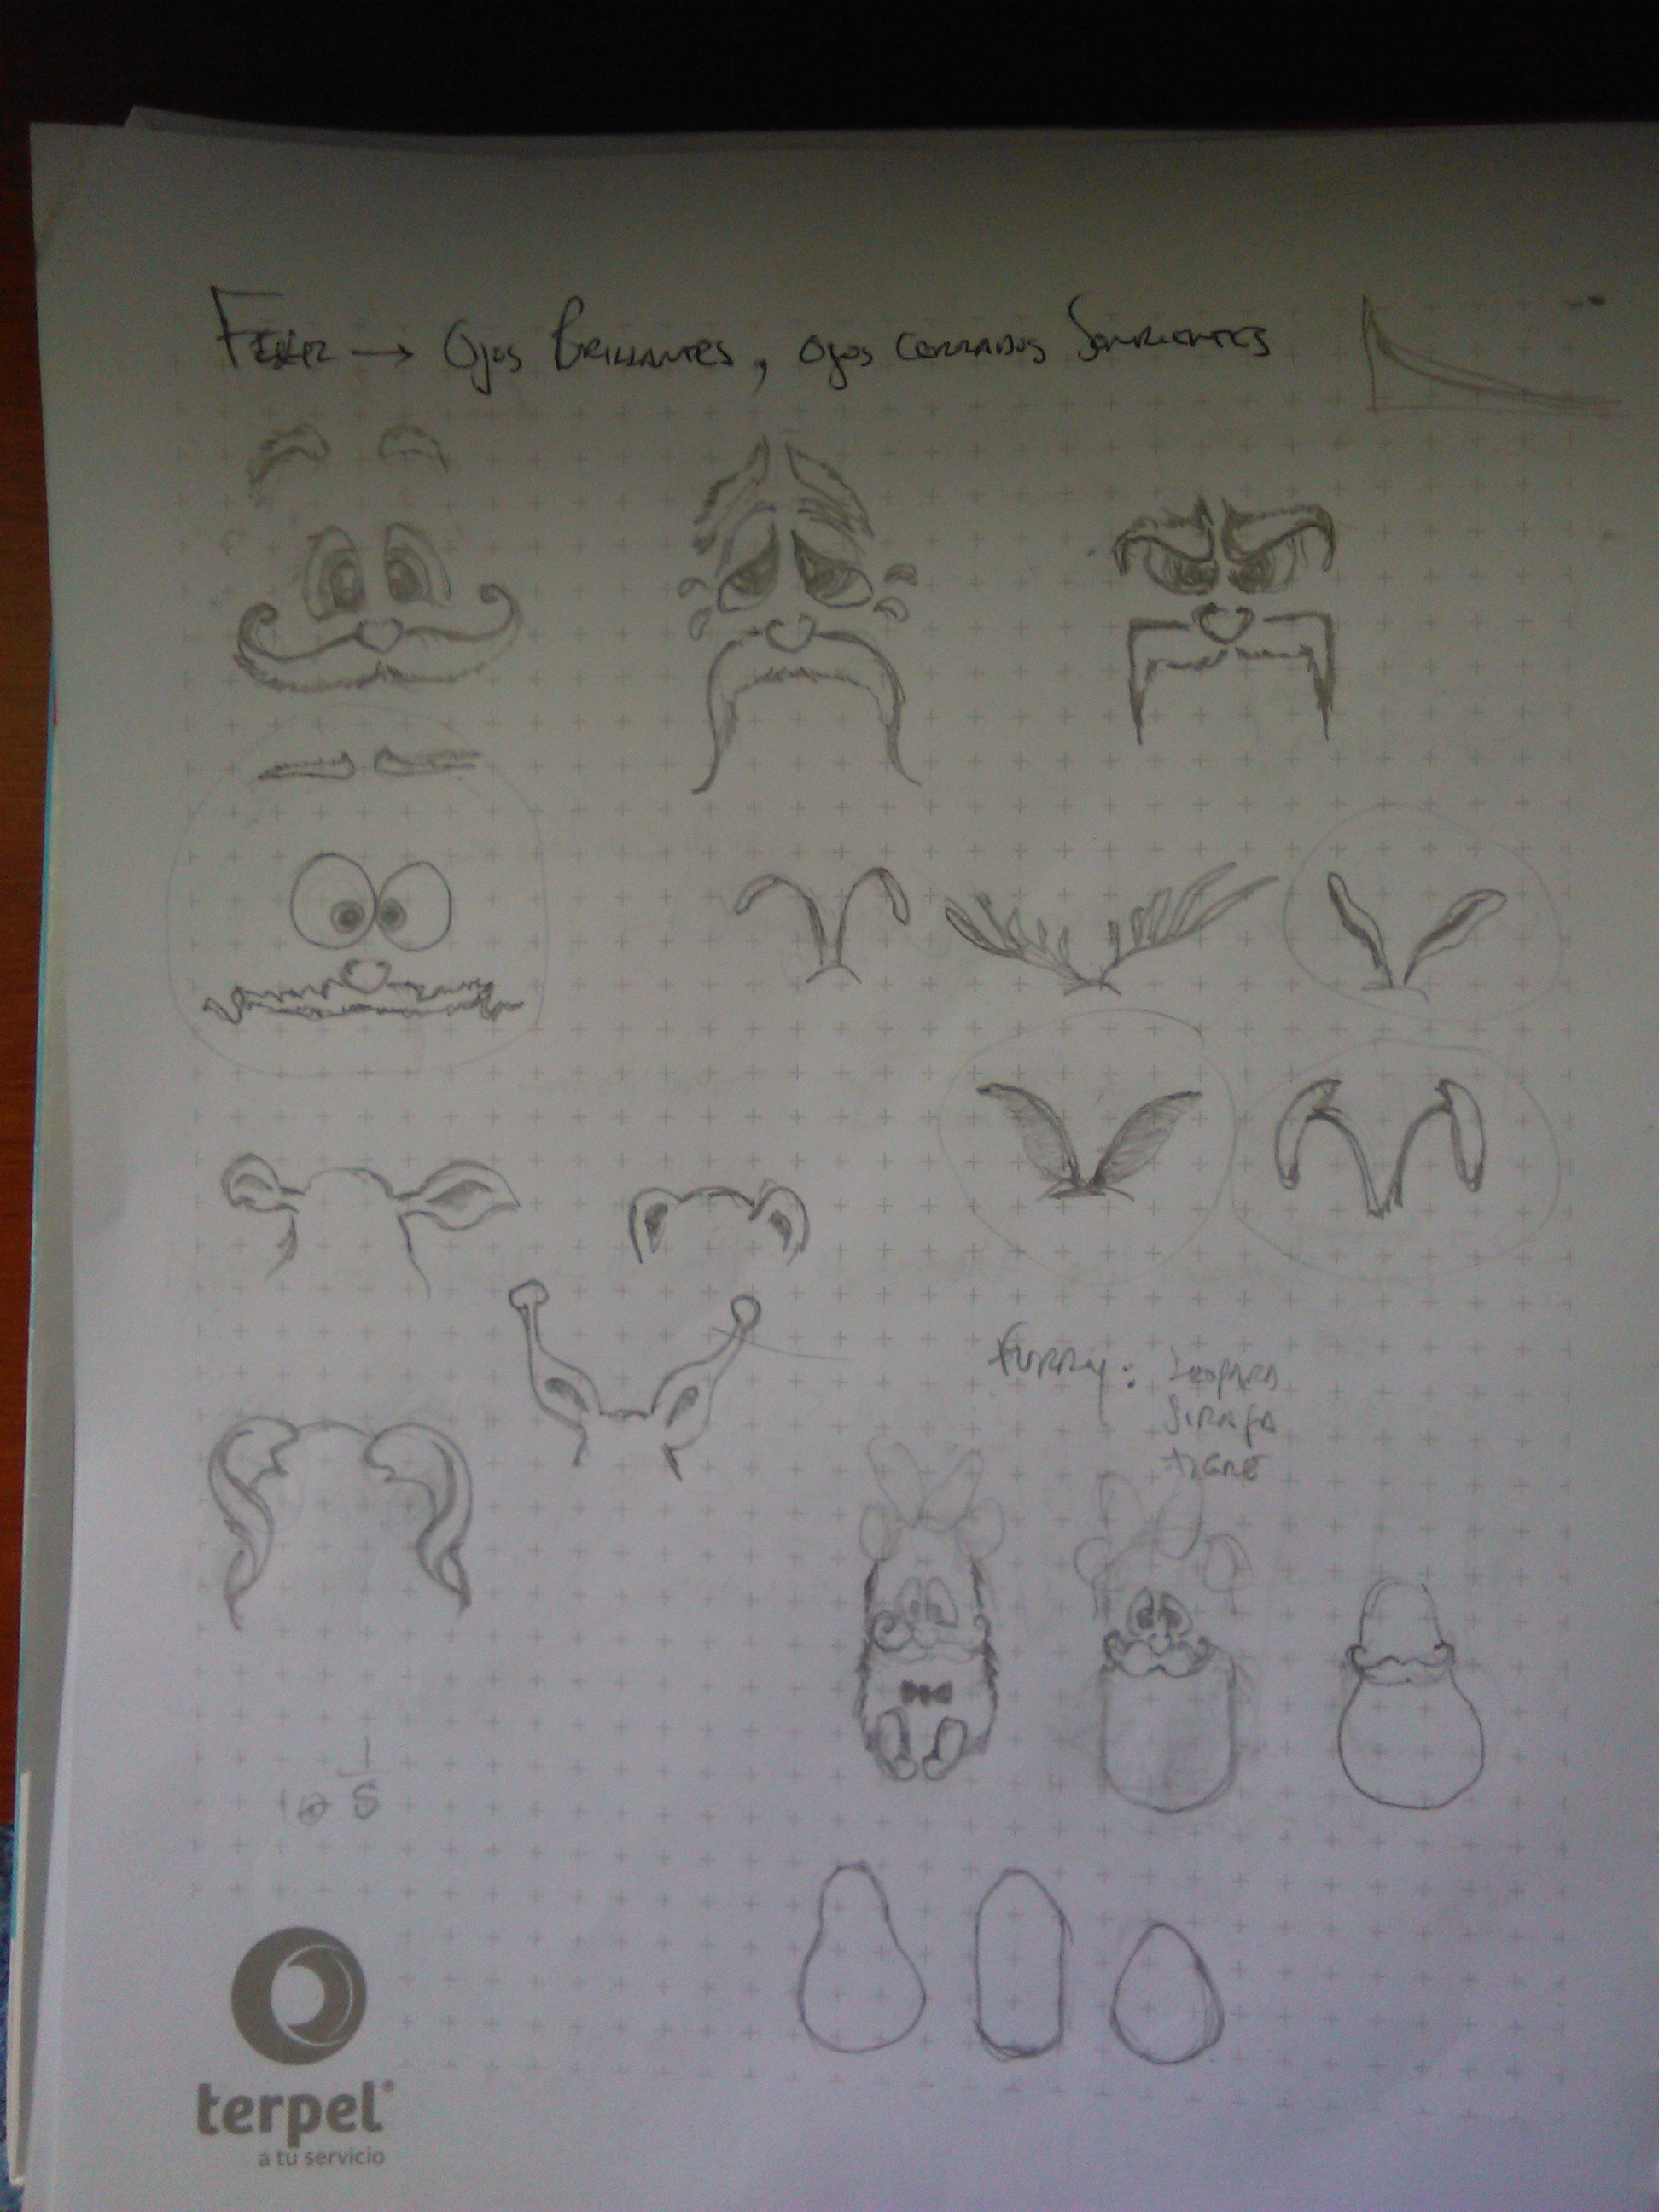 → Ojos Brillantes, ojos cerrados Sonrientes
Furry: Leopard
Jirafa
tigre
1
5
terpel®
a tu servicio